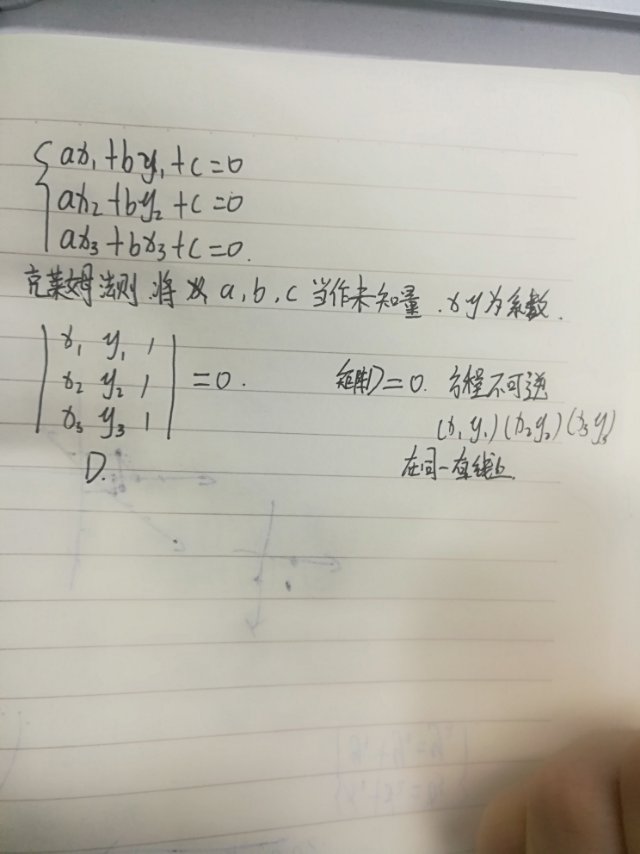 ax₁+by₁+c=0
ax₂+by₂+c=0
ax₃+bx₃+c=0.
克莱姆法则.将 a,b,c 当作未知量.x y为系数.
x₁ y₁ 1
x₂ y₂ 1 =0.
x₃ y₃ 1
D.
矩阵D=0. 方程不可逆
(x₁ y₁)(x₂y₂)(x₃y₃)
在同一直线上.